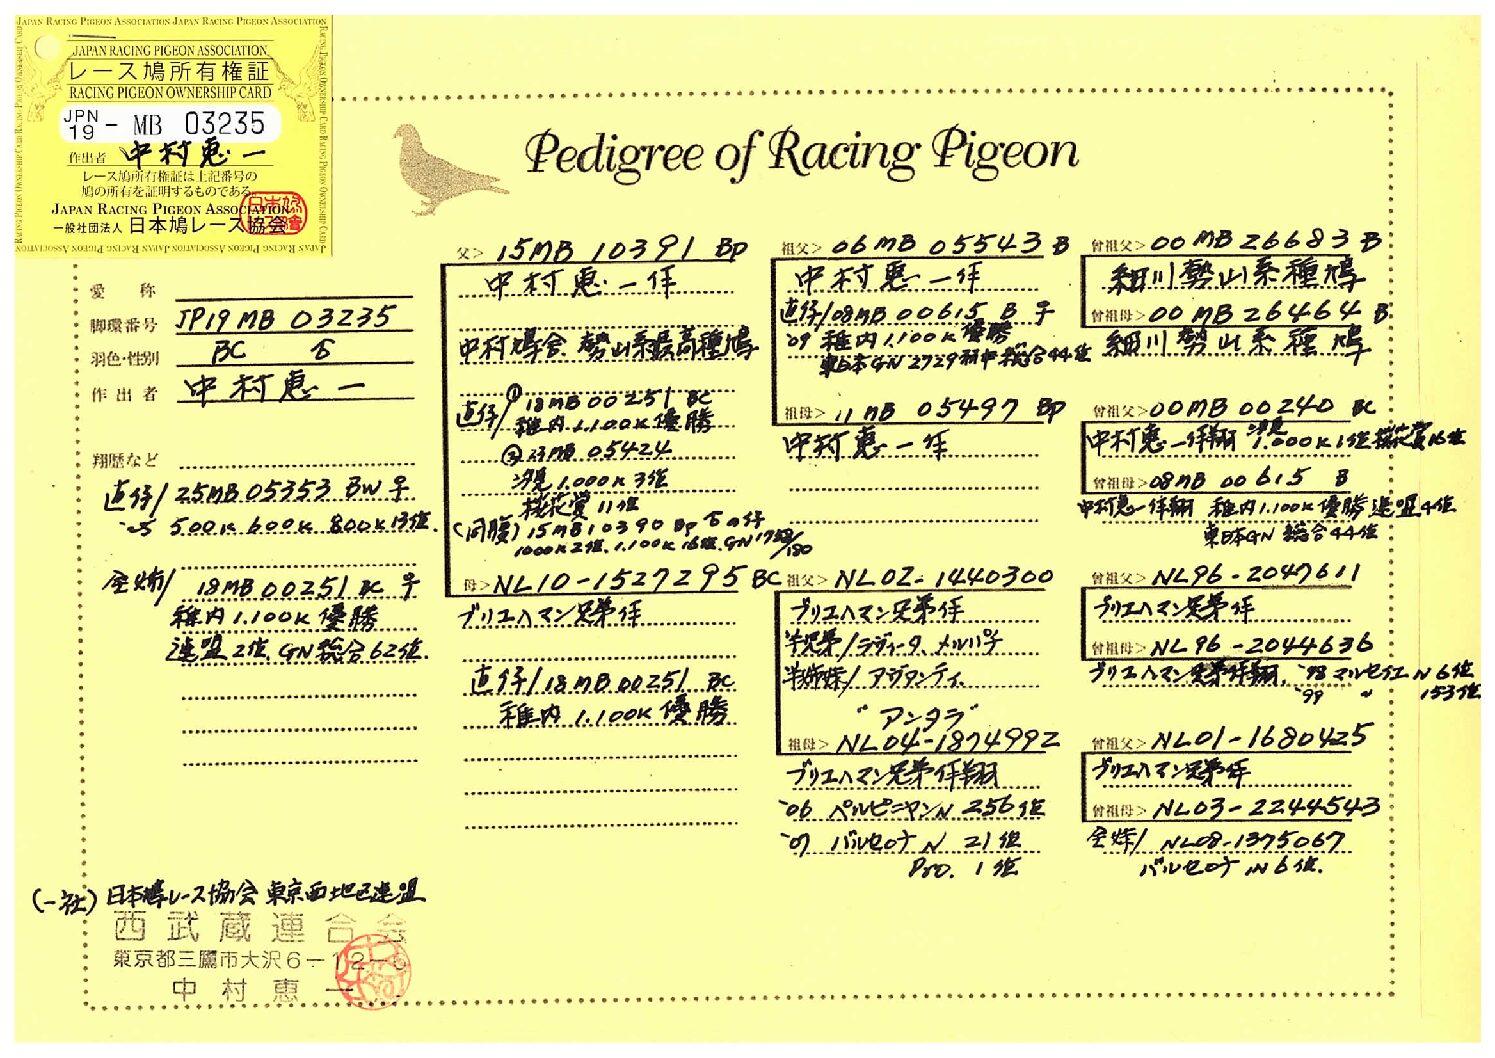 JAPAN RACING PIGEON ASSOCIATION JAPAN RACING PIGEON ASSOCIATION
JAPAN RACING PIGEON ASSOCIATION
レース鳩所有権証
RACING PIGEON OWNERSHIP CARD
JPN 19 - MB 03235
作出者 中村惠一
レース鳩所有権証は上記番号の
鳩の所有を証明するものである。
JAPAN RACING PIGEON ASSOCIATION
一般社団法人 日本鳩レース協会
Pedigree of Racing Pigeon
愛称
脚環番号 JP19 MB 03235
羽色・性別 BC
作出者 中村惠一
翔歴など
直仔/25MB05353 BW ♀
'25 500K 600K 800K 13位
全姉/ 18MB00251 BC ♀
稚内1.100K優勝
連盟2位、GN総合62位.
父> 15MB 10391 BP
中村惠一作
中村鳩舎 勢山系最高種鳩
直仔/① 18MB00251 BC
稚内1.100K優勝
② 23MB 05424
汐見1.000K3位
桜花賞11位
(同腹)15MB10390 BP
1000K2位、1.100K16位、GN
母> NL10-1527295 BC
ブリエハマン兄弟作
直仔/18MB00251 BC
稚内1.100K優勝
祖父> 06MB 05543 B
中村惠一作
直仔/08MB00615 B ♀
'09 稚内1.100K優勝
東日本GN2729羽中総合44位
祖母> 11MB 05497 BP
中村惠一作
祖父> NL02-1440300
ブリエハマン兄弟作
半兄弟/ラヴィータ、メルパチ
半姉妹/アヴァンティ.
"アンタラ"
祖母> NL04-1874992
ブリエハマン兄弟作翔
'06 ペルピニャンN 256位
'07 バルセロナN 21位
Pro. 1位
曾祖父> 00MB26683 B
細川勢山系種鳩
曾祖母> 00MB26464 B
細川勢山系種鳩
曾祖父> 00MB00240 BC
中村惠一作翔 汐見1.000K1位 桜花賞16位
曾祖母> 08MB00615 B
中村惠一作翔 稚内1.100K優勝 連盟4位
東日本GN 総合44位
曾祖父> NL96-2047611
ブリエハマン兄弟作
曾祖母> NL96-2044636
ブリエハマン兄弟作翔、'98マルセイユN6位
'99 〃 153位
曾祖父> NL01-1680425
ブリエハマン兄弟作
曾祖母> NL03-2244543
全姉/ NL08-1375067
バルセロナN6位.
(一社)日本鳩レース協会 東京西地区連盟
西武蔵連合会
東京都三鷹市大沢6-12-6
中村惠一